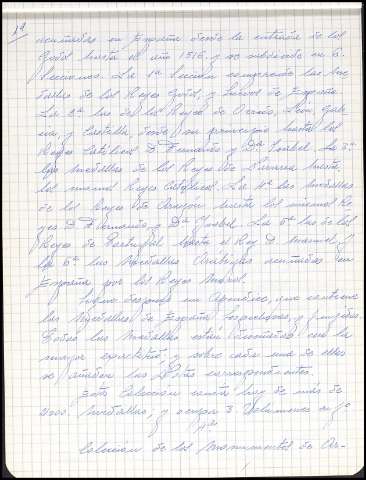 1ª
acuñadas en España desde la entrada de los
Godos hasta el año 1516, y se subdivide en 6
Secciones. La 1ª Sección comprende las me-
dallas de los Reyes Godos, y Suevos de España
La 2ª las de los Reyes de Oviedo, León, Gali-
cia, y Castilla, desde su principio hasta los
Reyes Católicos Dn Fernando, y Dª Isabel. La 3ª
las medallas de los Reyes de Navarra hasta
los mismos Reyes Católicos. La 4ª las medallas
de los Reyes de Aragón hasta los mismos Re-
yes Dn Fernando y Dª Isabel. La 5ª las de los
Reyes de Portugal hasta el Rey Dn Manuel y
la 6ª las Medallas Arabigas acuñadas en
España por los Reyes Moros.
Sigue después un Apéndice, que contiene
las Medallas de España Sospechosas, y fingidas.
Todas las Medallas están diseñadas con la
mayor exactitud, y sobre cada una de ellas
se añaden las Notas correspondientes.
Esta Colección consta hoy de más de
2000 Medallas, y ocupa 3 Volúmenes en fº
Colección de los Monumentos de Ar-